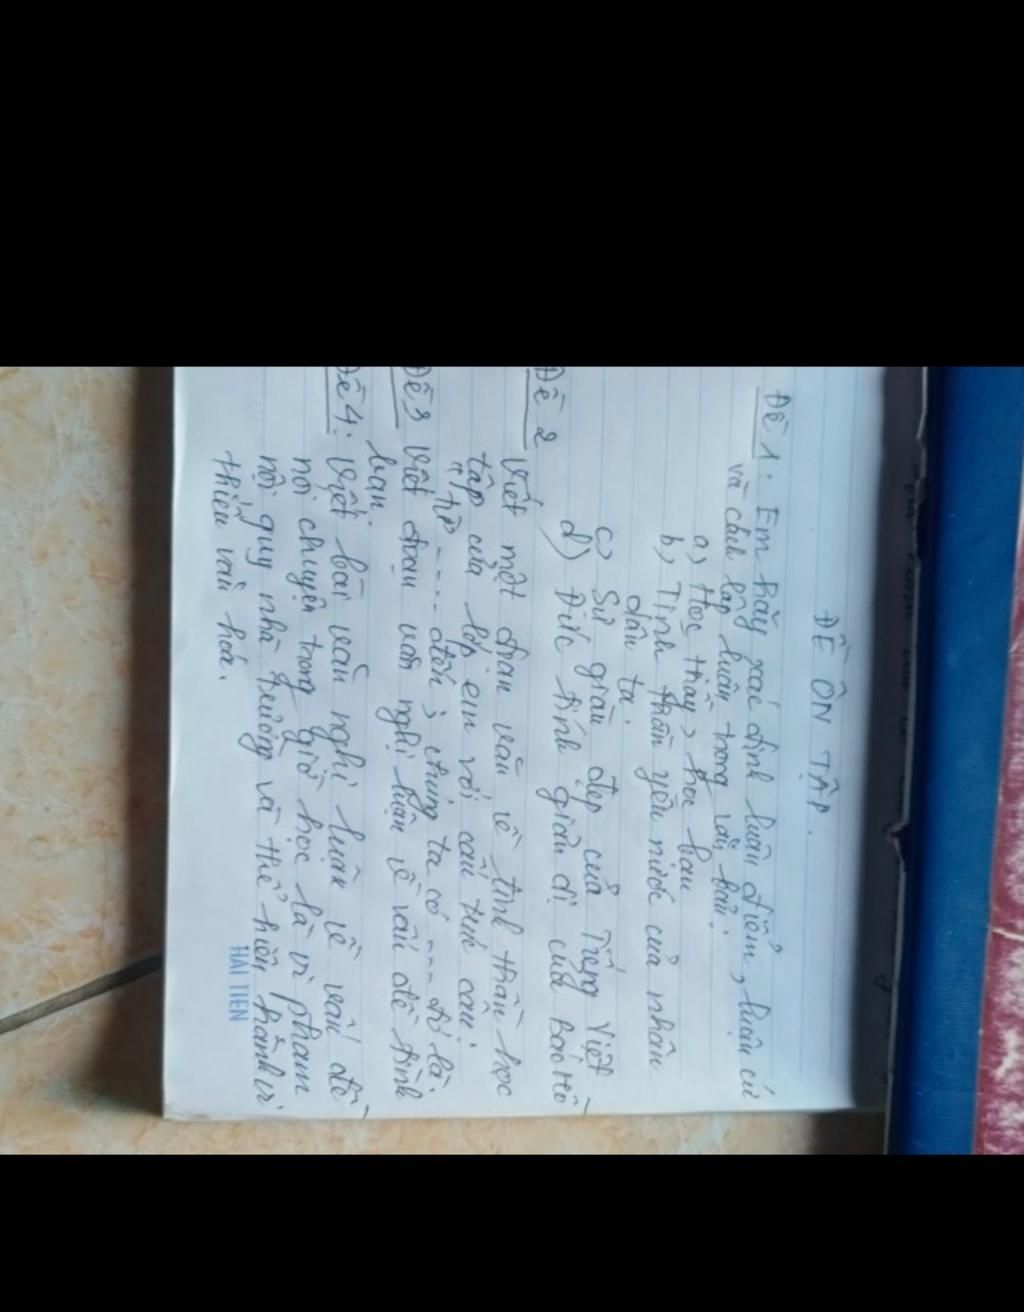 ĐỀ ÔN TẬP.
Đề 1: Em hãy xác định luận điểm, luận cứ
và cách lập luận trong văn bản:
a) Học thầy, học bạn
b) Tinh thần yêu nước của nhân
dân ta.
c) Sự giàu đẹp của Tiếng Việt
d) Đức tính giản dị của Bác Hồ
Đề 2
Viết một đoạn văn về tinh thần học
tập của lớp em với cấu trúc câu:
"Từ ..... đến; chúng ta có .... đó là.
Đề 3 Viết đoạn văn nghị luận về vấn đề tình
bạn.
Đề 4: Viết bài văn nghị luận về vấn đề
nói chuyện trong giờ học là vi phạm
nội quy nhà trường và thể hiện hành vi
thiếu văn hoá.
HẢI TIẾN